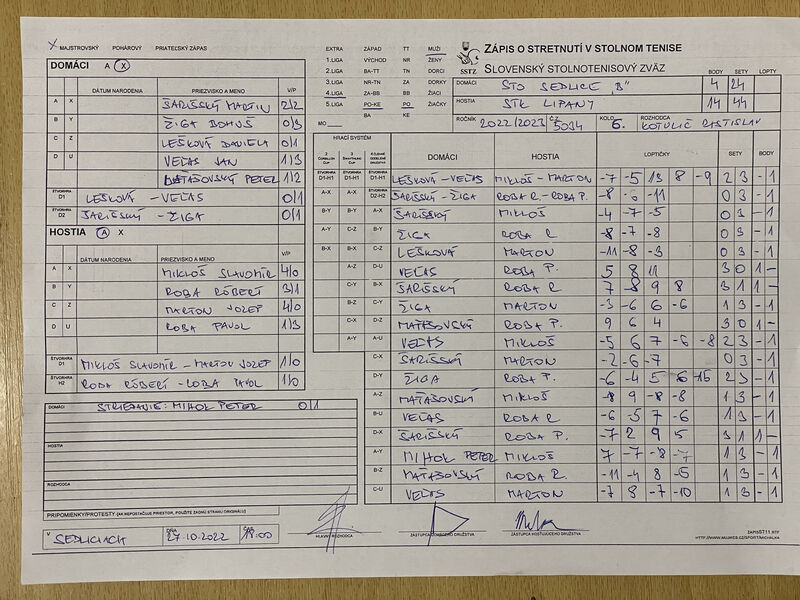 X MAJSTROVSKÝ POHÁROVÝ PRIATEĽSKÝ ZÁPAS
DOMÁCI A X
DÁTUM NARODENIA PRIEZVISKO A MENO V/P
A X ŠARIŠSKÝ MARTIN 2/2
B Y ŽIGA BOHUŠ 0/3
C Z LEŠKOVÁ DANIELA 0/1
D U VEĽAS JAN 1/3
MATAŠOVSKÝ PETER 1/2
ŠTVORHRA D1 LEŠKOVÁ - VEĽAS 0/1
ŠTVORHRA D2 ŠARIŠSKÝ - ŽIGA 0/1
HOSTIA A X
DÁTUM NARODENIA PRIEZVISKO A MENO V/P
A X MIKLOŠ SLAVOMÍR 4/0
B Y ROBA RÓBERT 3/1
C Z MARTON JOZEF 4/0
D U ROBA PAVOL 1/3
ŠTVORHRA D1 MIKLOŠ SLAVOMÍR - MARTON JOZEF 1/0
ŠTVORHRA H2 ROBA RÓBERT - ROBA PAVOL 1/0
DOMÁCI STRIEDANIE: MIHOK PETER 0/1
HOSTIA
ROZHODCA
PRIPOMIENKY/PROTESTY (AK NEPOSTAČUJE PRIESTOR, POUŽITE ZADNÚ STRANU ORIGINÁLU)
V SEDLICIACH DŇA 27.10.2022 ČAS 18:00
HLAVNÝ ROZHODCA ZÁSTUPCA DOMÁCEHO DRUŽSTVA ZÁSTUPCA HOSŤUJÚCEHO DRUŽSTVA
EXTRA ZÁPAD TT MUŽI
1.LIGA VÝCHOD NR ŽENY
2.LIGA BA-TT TN DORCI
3.LIGA NR-TN ZA DORKY
4.LIGA ZA-BB BB ŽIACI
5.LIGA PO-KE PO ŽIAČKY
MO BA KE
SSTZ
ZÁPIS O STRETNUTÍ V STOLNOM TENISE
SLOVENSKÝ STOLNOTENISOVÝ ZVÄZ
BODY SETY LOPTY
DOMÁCI STO SEDLICE "B" 4 24
HOSTIA STK LIPANY 14 44
ROČNÍK 2022/2023 Č.Z. 5034 KOLO 6. ROZHODCA KOTULIČ RASTISLAV
HRACÍ SYSTÉM
DOMÁCI HOSTIA LOPTIČKY SETY BODY
D1-H1 D1-H1 D1-H1 LEŠKOVÁ - VEĽAS MIKLOŠ - MARTON -7 -5 13 8 -9 2 3 - 1
A-X A-X D2-H2 ŠARIŠSKÝ - ŽIGA ROBA R. - ROBA P. -8 -6 -11 0 3 - 1
B-Y B-Y A-X ŠARIŠSKÝ MIKLOŠ -4 -7 -5 0 3 - 1
A-Y C-Z B-Y ŽIGA ROBA R. -8 -7 -8 0 3 - 1
B-X B-X C-Z LEŠKOVÁ MARTON -11 -8 -3 0 3 - 1
A-Z D-U VEĽAS ROBA P. 5 8 11 3 0 1 -
C-Y B-X ŠARIŠSKÝ ROBA R 7 -8 9 8 3 1 1 -
B-Z C-Y ŽIGA MARTON -3 -6 6 -6 1 3 - 1
C-X D-Z MATAŠOVSKÝ ROBA P. 9 6 4 3 0 1 -
A-Y A-U VEĽAS MIKLOŠ -5 6 7 -6 -8 2 3 - 1
C-X ŠARIŠSKÝ MARTON -2 -6 -7 0 3 - 1
D-Y ŽIGA ROBA P. -6 -4 5 6 -15 2 3 - 1
A-Z MATAŠOVSKÝ MIKLOŠ -8 9 -8 -8 1 3 - 1
B-U VEĽAS ROBA R -6 -5 7 -6 1 3 - 1
D-X ŠARIŠSKÝ ROBA P. -7 2 9 5 3 1 1 -
A-Y MIHOK PETER MIKLOŠ 7 -7 -8 -7 1 3 - 1
B-Z MATAŠOVSKÝ ROBA R. -11 -4 8 -5 1 3 - 1
C-U VEĽAS MARTON -7 8 -7 -10 1 3 - 1
ZAPISST11.RTF